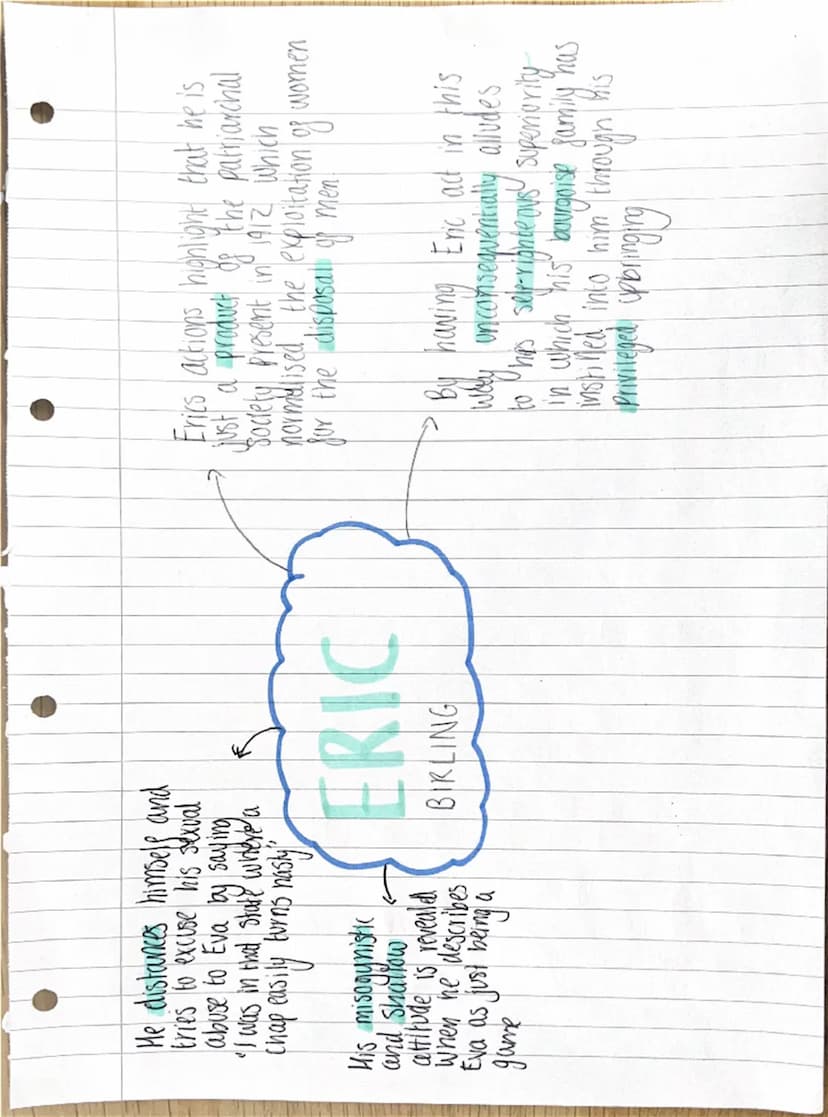 He distances himself and
tries to excuse his sexual
abuse to Eva by saying
"I was in that state where a
chap easily turns nasty"
Erics actions highlight that he is
just a product of the patriarchal
society present in 1912 which
normalised the exploitation of women
for the disposal of men
ERIC
BIRLING
His misogynistic
and shallow
attitude is revealed
when he describes
Eva as just being a
game
By having Eric act in this
way unconsequentially alludes
to his self-righteous superiority
in which his bourgoise family has
instilled into him through his
privileged upbringing